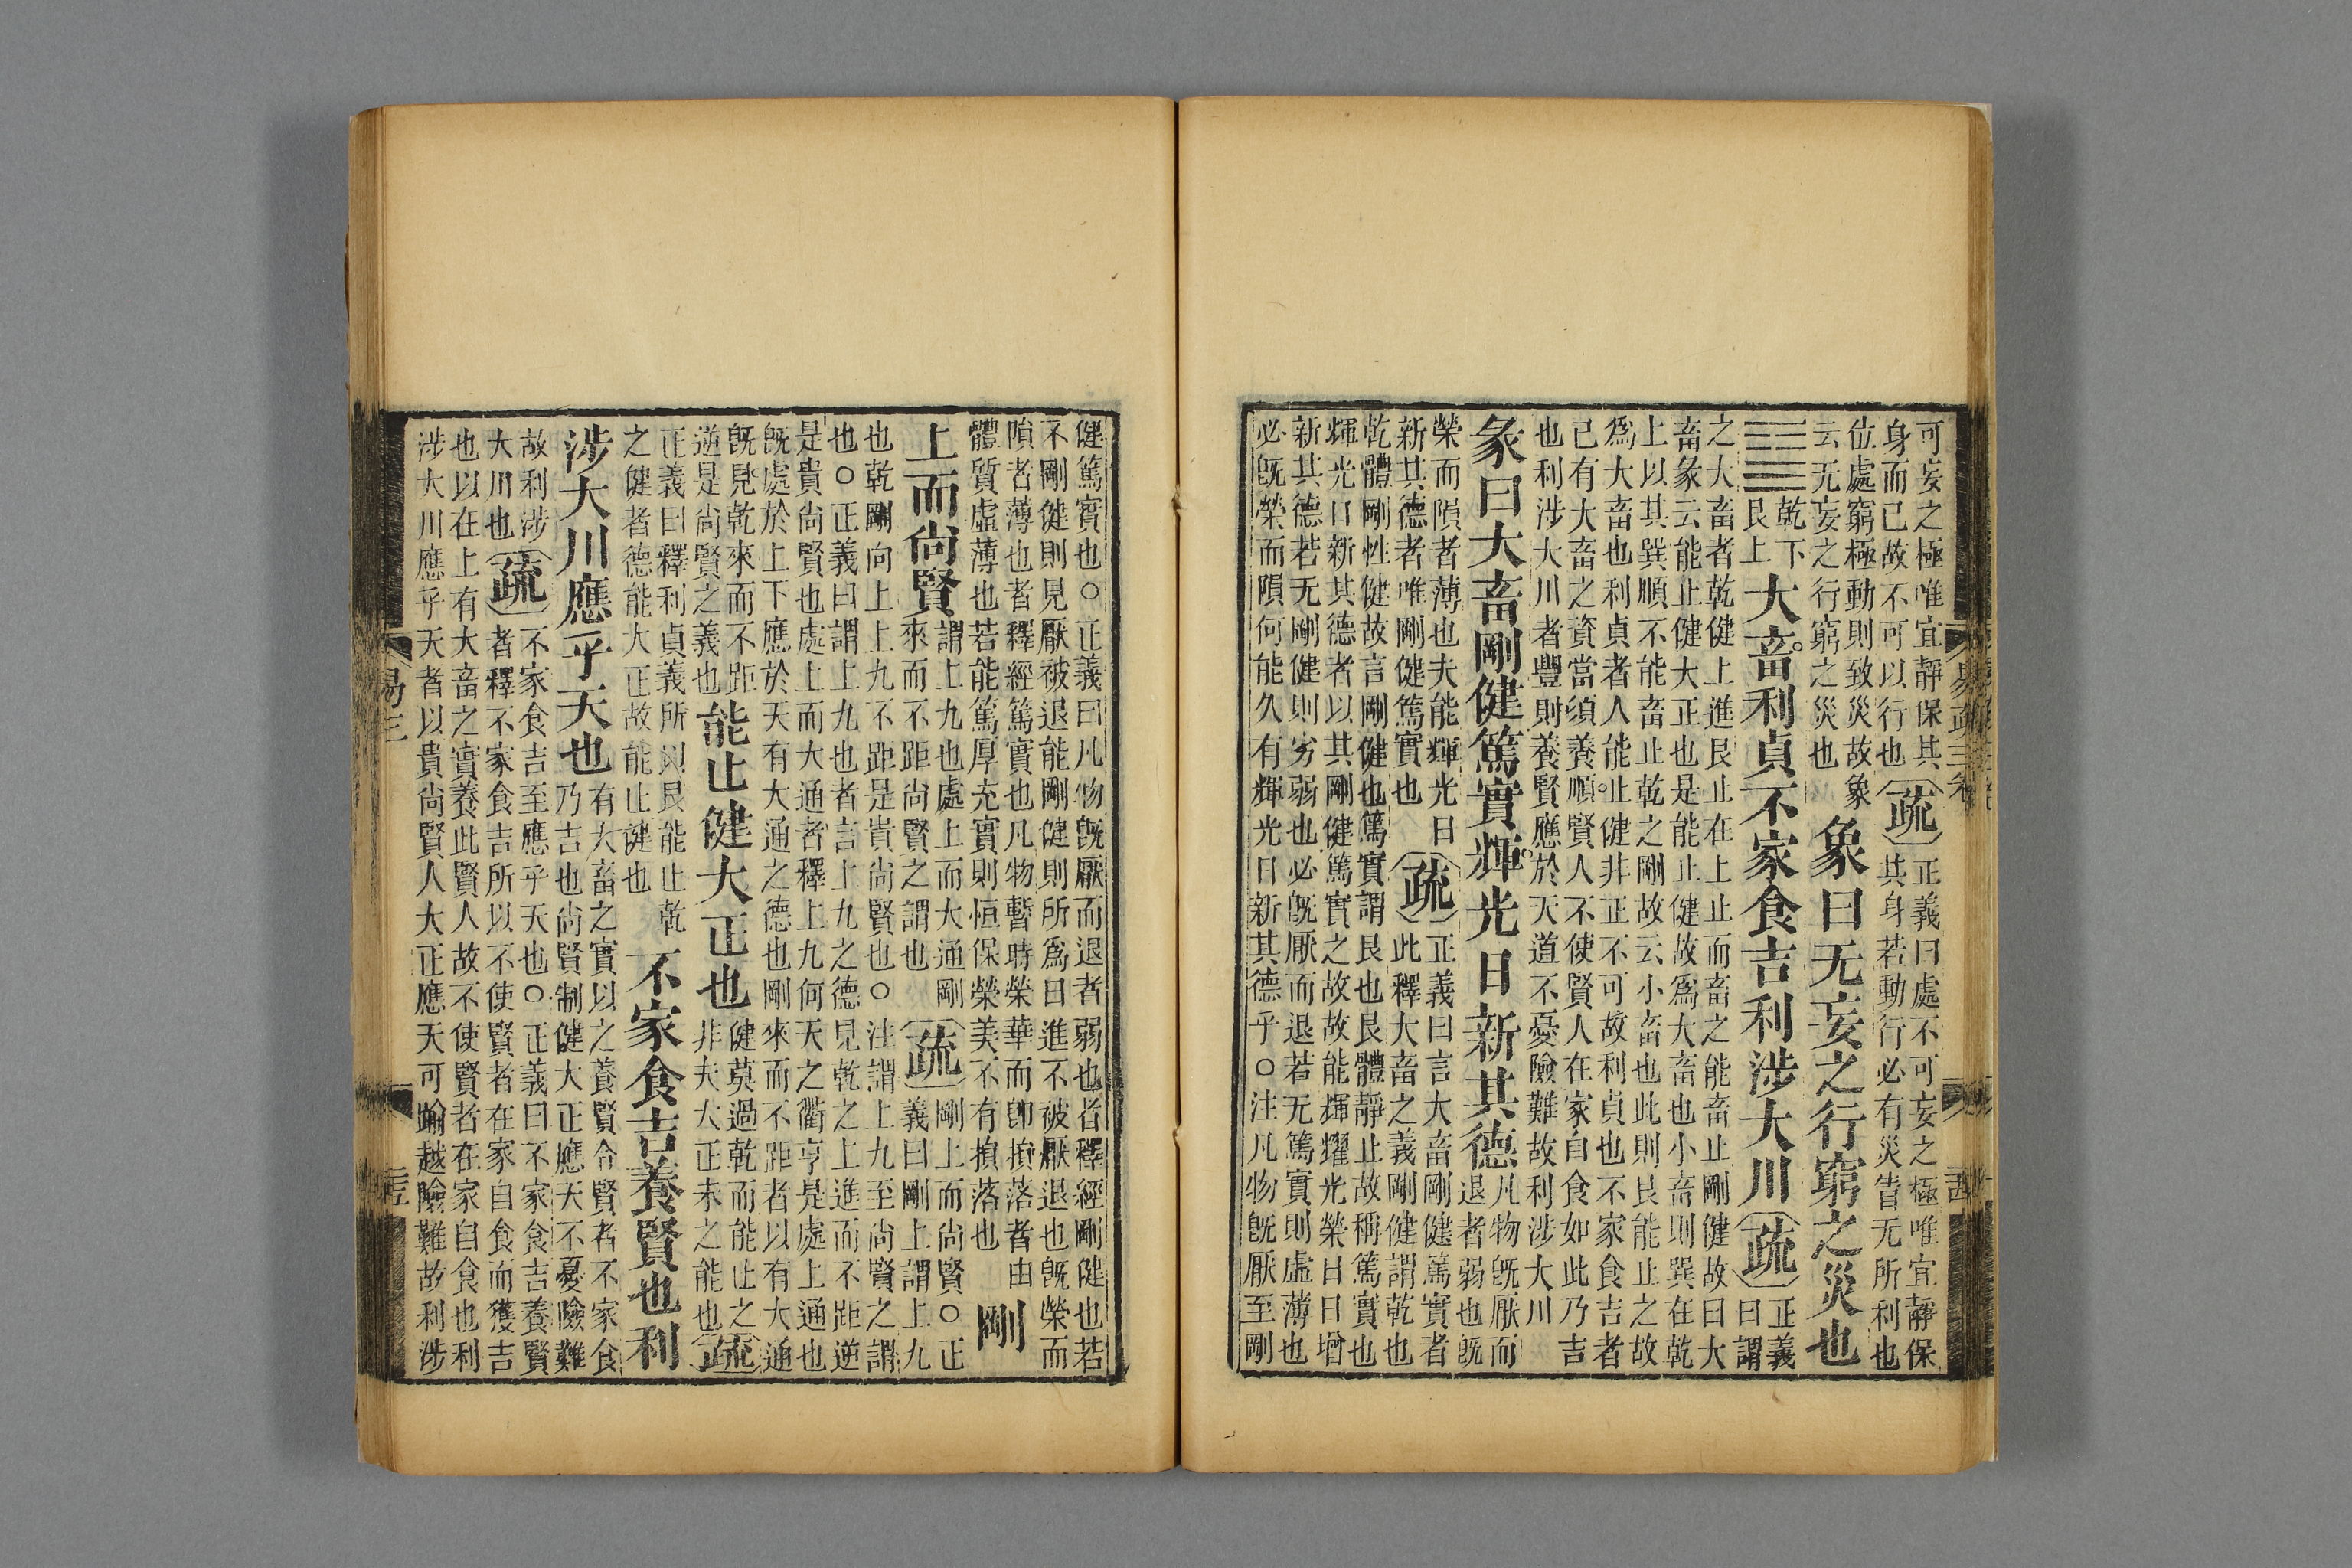 易疏三卷
可妄之極唯宜靜保其
身而已故不可以行也
疏
正義曰處不可妄之極唯宜靜保
其身若動行必有災眚无所利也
位處窮極動則致災故象
云无妄之行窮之災也
象曰无妄之行窮之災也
乾下
艮上
大畜利貞不家食吉利涉大川
疏
正義
曰謂
之大畜者乾健上進艮止在上止而畜之能畜止剛健故曰大
畜彖云能止健大正也是能止健故爲大畜也小畜則巽在乾
上以其巽順不能畜止乾之剛故云小畜也此則艮能止之故
爲大畜也利貞者人能止健非正不可故利貞也不家食吉者
己有大畜之資當須養順賢人不使賢人在家自食如此乃吉
也利涉大川者豐則養賢應於天道不憂險難故利涉大川
彖曰大畜剛健篤實輝光日新其德
凡物旣厭而
退者弱也旣
榮而隕者薄也夫能輝光日
新其德者唯剛健篤實也
疏
正義曰言大畜剛健篤實者
此釋大畜之義剛健謂乾也
乾體剛性健故言剛健也篤實謂艮也艮體靜止故稱篤實也
輝光日新其德者以其剛健篤實之故故能輝耀光榮日日增
新其德若无剛健則劣弱也必旣厭而退若无篤實則虛薄也
必旣榮而隕何能久有輝光日新其德乎○注凡物旣厭至剛
健篤實也○正義曰凡物旣厭而退者弱也者釋經剛健也若
不剛健則見厭被退能剛健則所爲日進不被厭退也旣榮而
隕者薄也者釋經篤實也凡物暫時榮華而卽損落者由
體質虛薄也若能篤厚充實則恒保榮美不有損落也
剛
上而尚賢
謂上九也處上而大通剛
來而不距尚賢之謂也
疏
剛上而尚賢○正
義曰剛上謂上九
也乾剛向上上九不距是貴尚賢也○注謂上九至尚賢之謂
也○正義曰謂上九也者言上九之德見乾之上進而不距逆
是貴尚賢也處上而大通者釋上九何天之衢亨是處上通也
旣處於上下應於天有大通之德也剛來而不距者以有大通
旣見乾來而不距
逆是尚賢之義也
能止健大正也
健莫過乾而能止之
非夫大正未之能也
疏
正義曰釋利貞義所以艮能止乾
之健者德能大正故能止健也
不家食吉養賢也利
涉大川應乎天也
有大畜之實以之養賢令賢者不家食
乃吉也尚賢制健大正應天不憂險難
故利涉
大川也
疏
不家食吉至應乎天也○正義曰不家食吉養賢
者釋不家食吉所以不使賢者在家自食而獲吉
也以在上有大畜之實養此賢人故不使賢者在家自食也利
涉大川應乎天者以貴尚賢人大正應天可踰越險難故利涉
易三